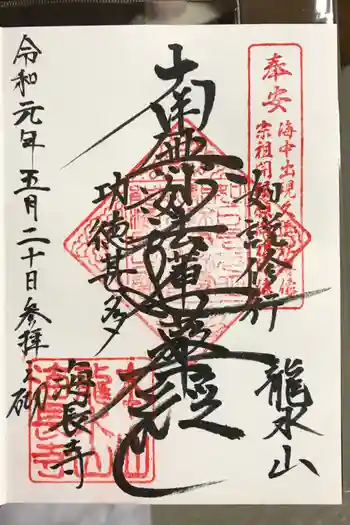 奉安
海中出現
宗祖
如説修行
龍水山
南無妙法蓮華経
功徳甚多
海長寺
令和元年五月二十日参拝之砌